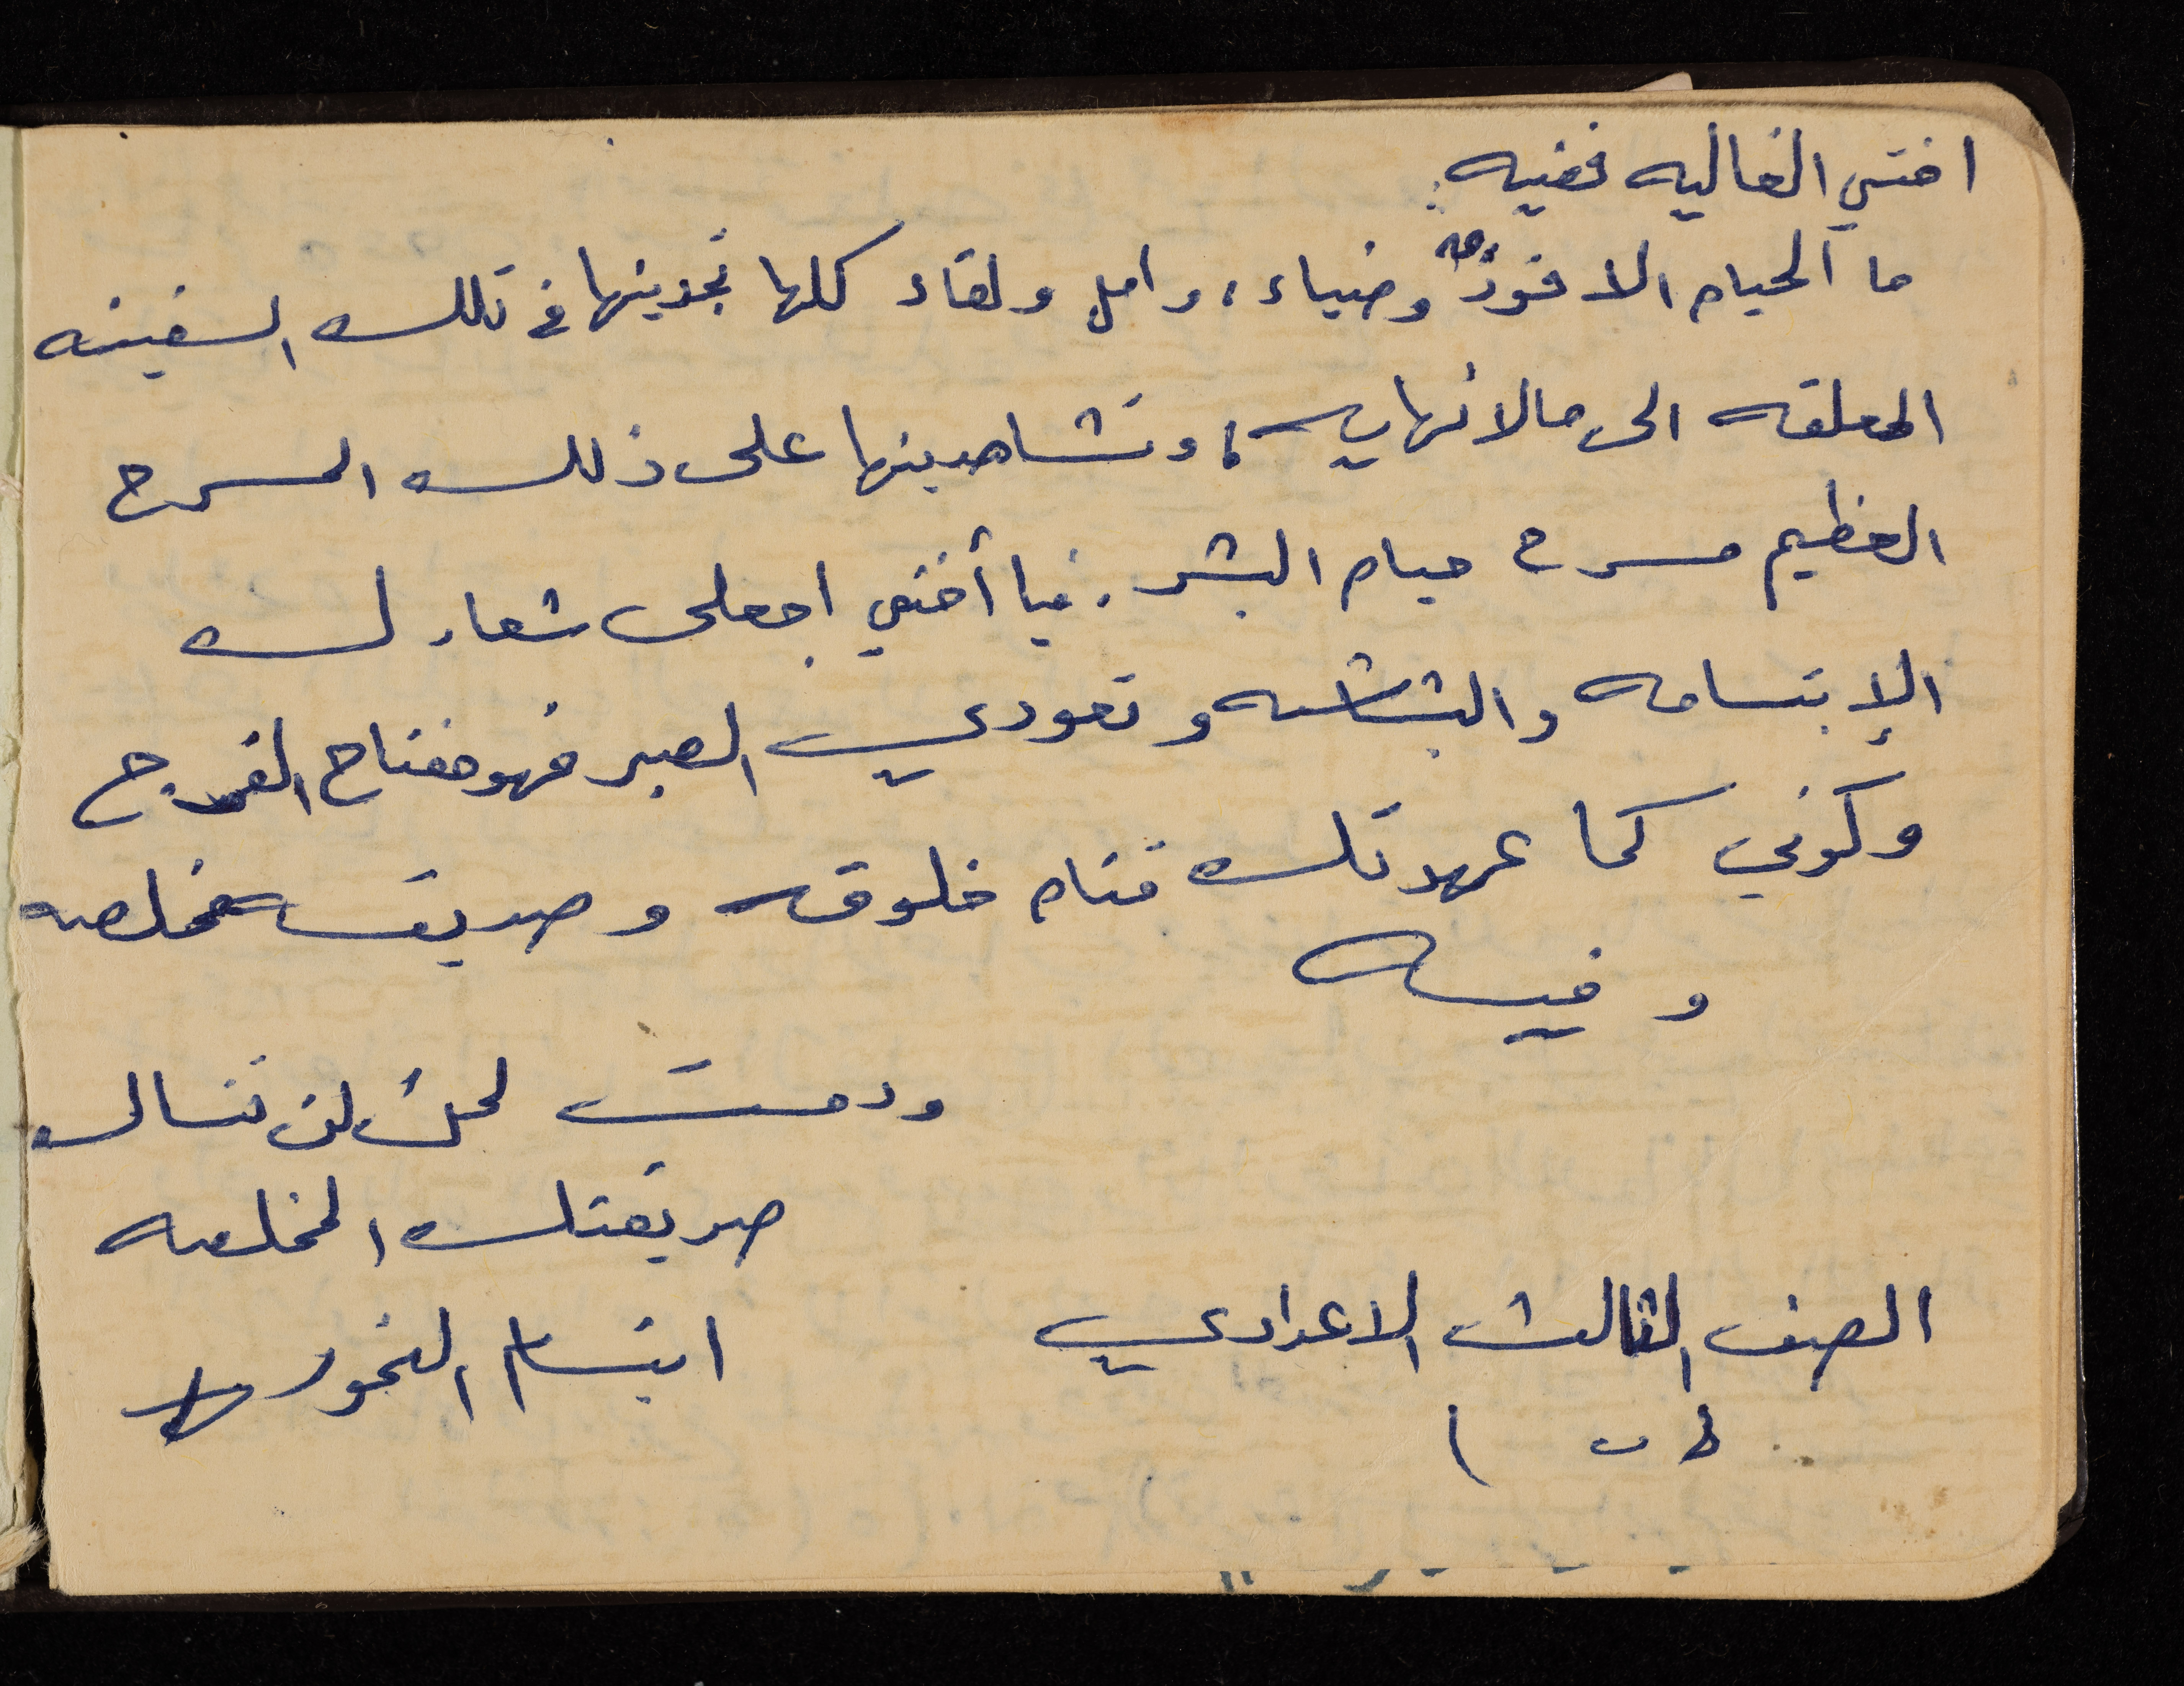 اختي الغاليه فضيه:
ما الحياه الا فوز وضياء، وامل ولقاء كلها تجدينها في تلك السفينه
المعلقه الى مالانهايه، وتشاهدينها على ذلك المسرح
العظيم مسرح حياه البشر. فيا أختي اجعلي شعارك
الإبتسامه والبشاشه وتعودي الصبر فهو مفتاح الفرج
وكوني كما عهدتك فتاه خلوقه وصديقه مخلصه
وفيه
ودمت لمن لن تنساك
صديقتك المخلصه
الصف الثالث الاعدادي ابتسام النحور
( ب )